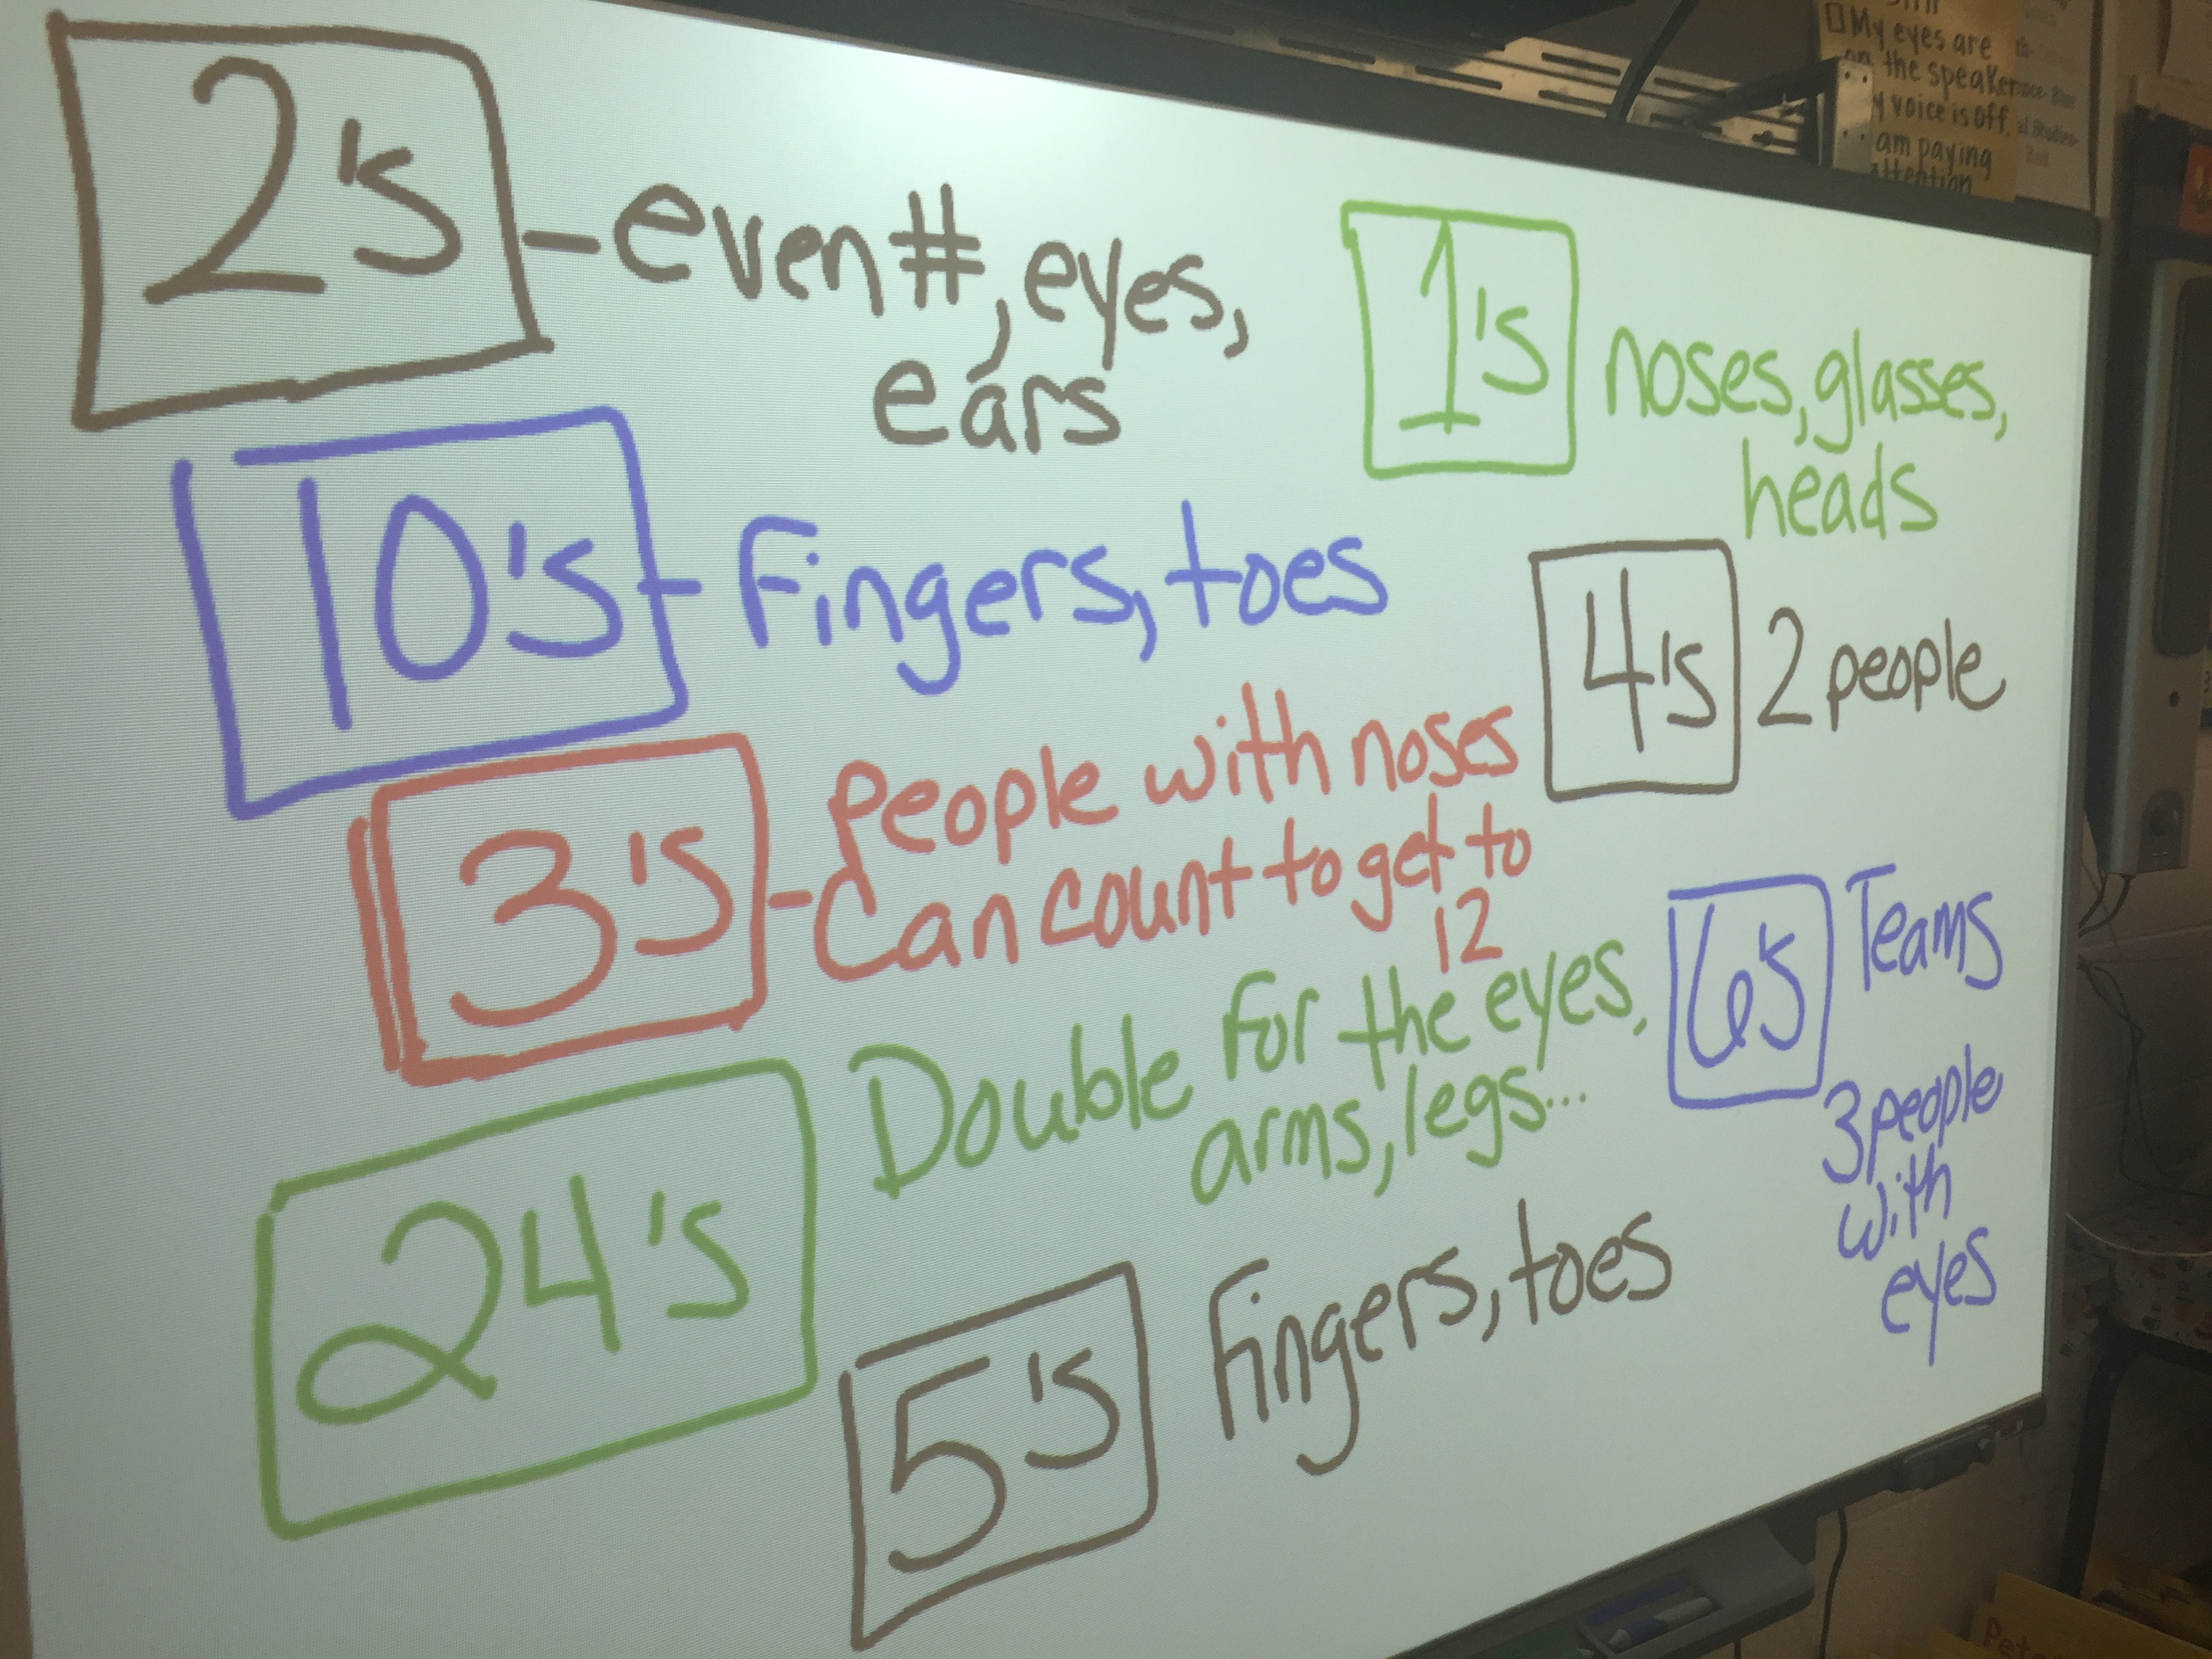 2's - even #, eyes,
ears
10's - Fingers, toes
3's - People with noses
Can count to get to
12
24's Double for the eyes,
arms, legs...
5's Fingers, toes
1's noses, glasses,
heads
4's 2 people
6's Teams
3 people
with
eyes
My eyes are
on the speaker
voice is off.
am paying
attention